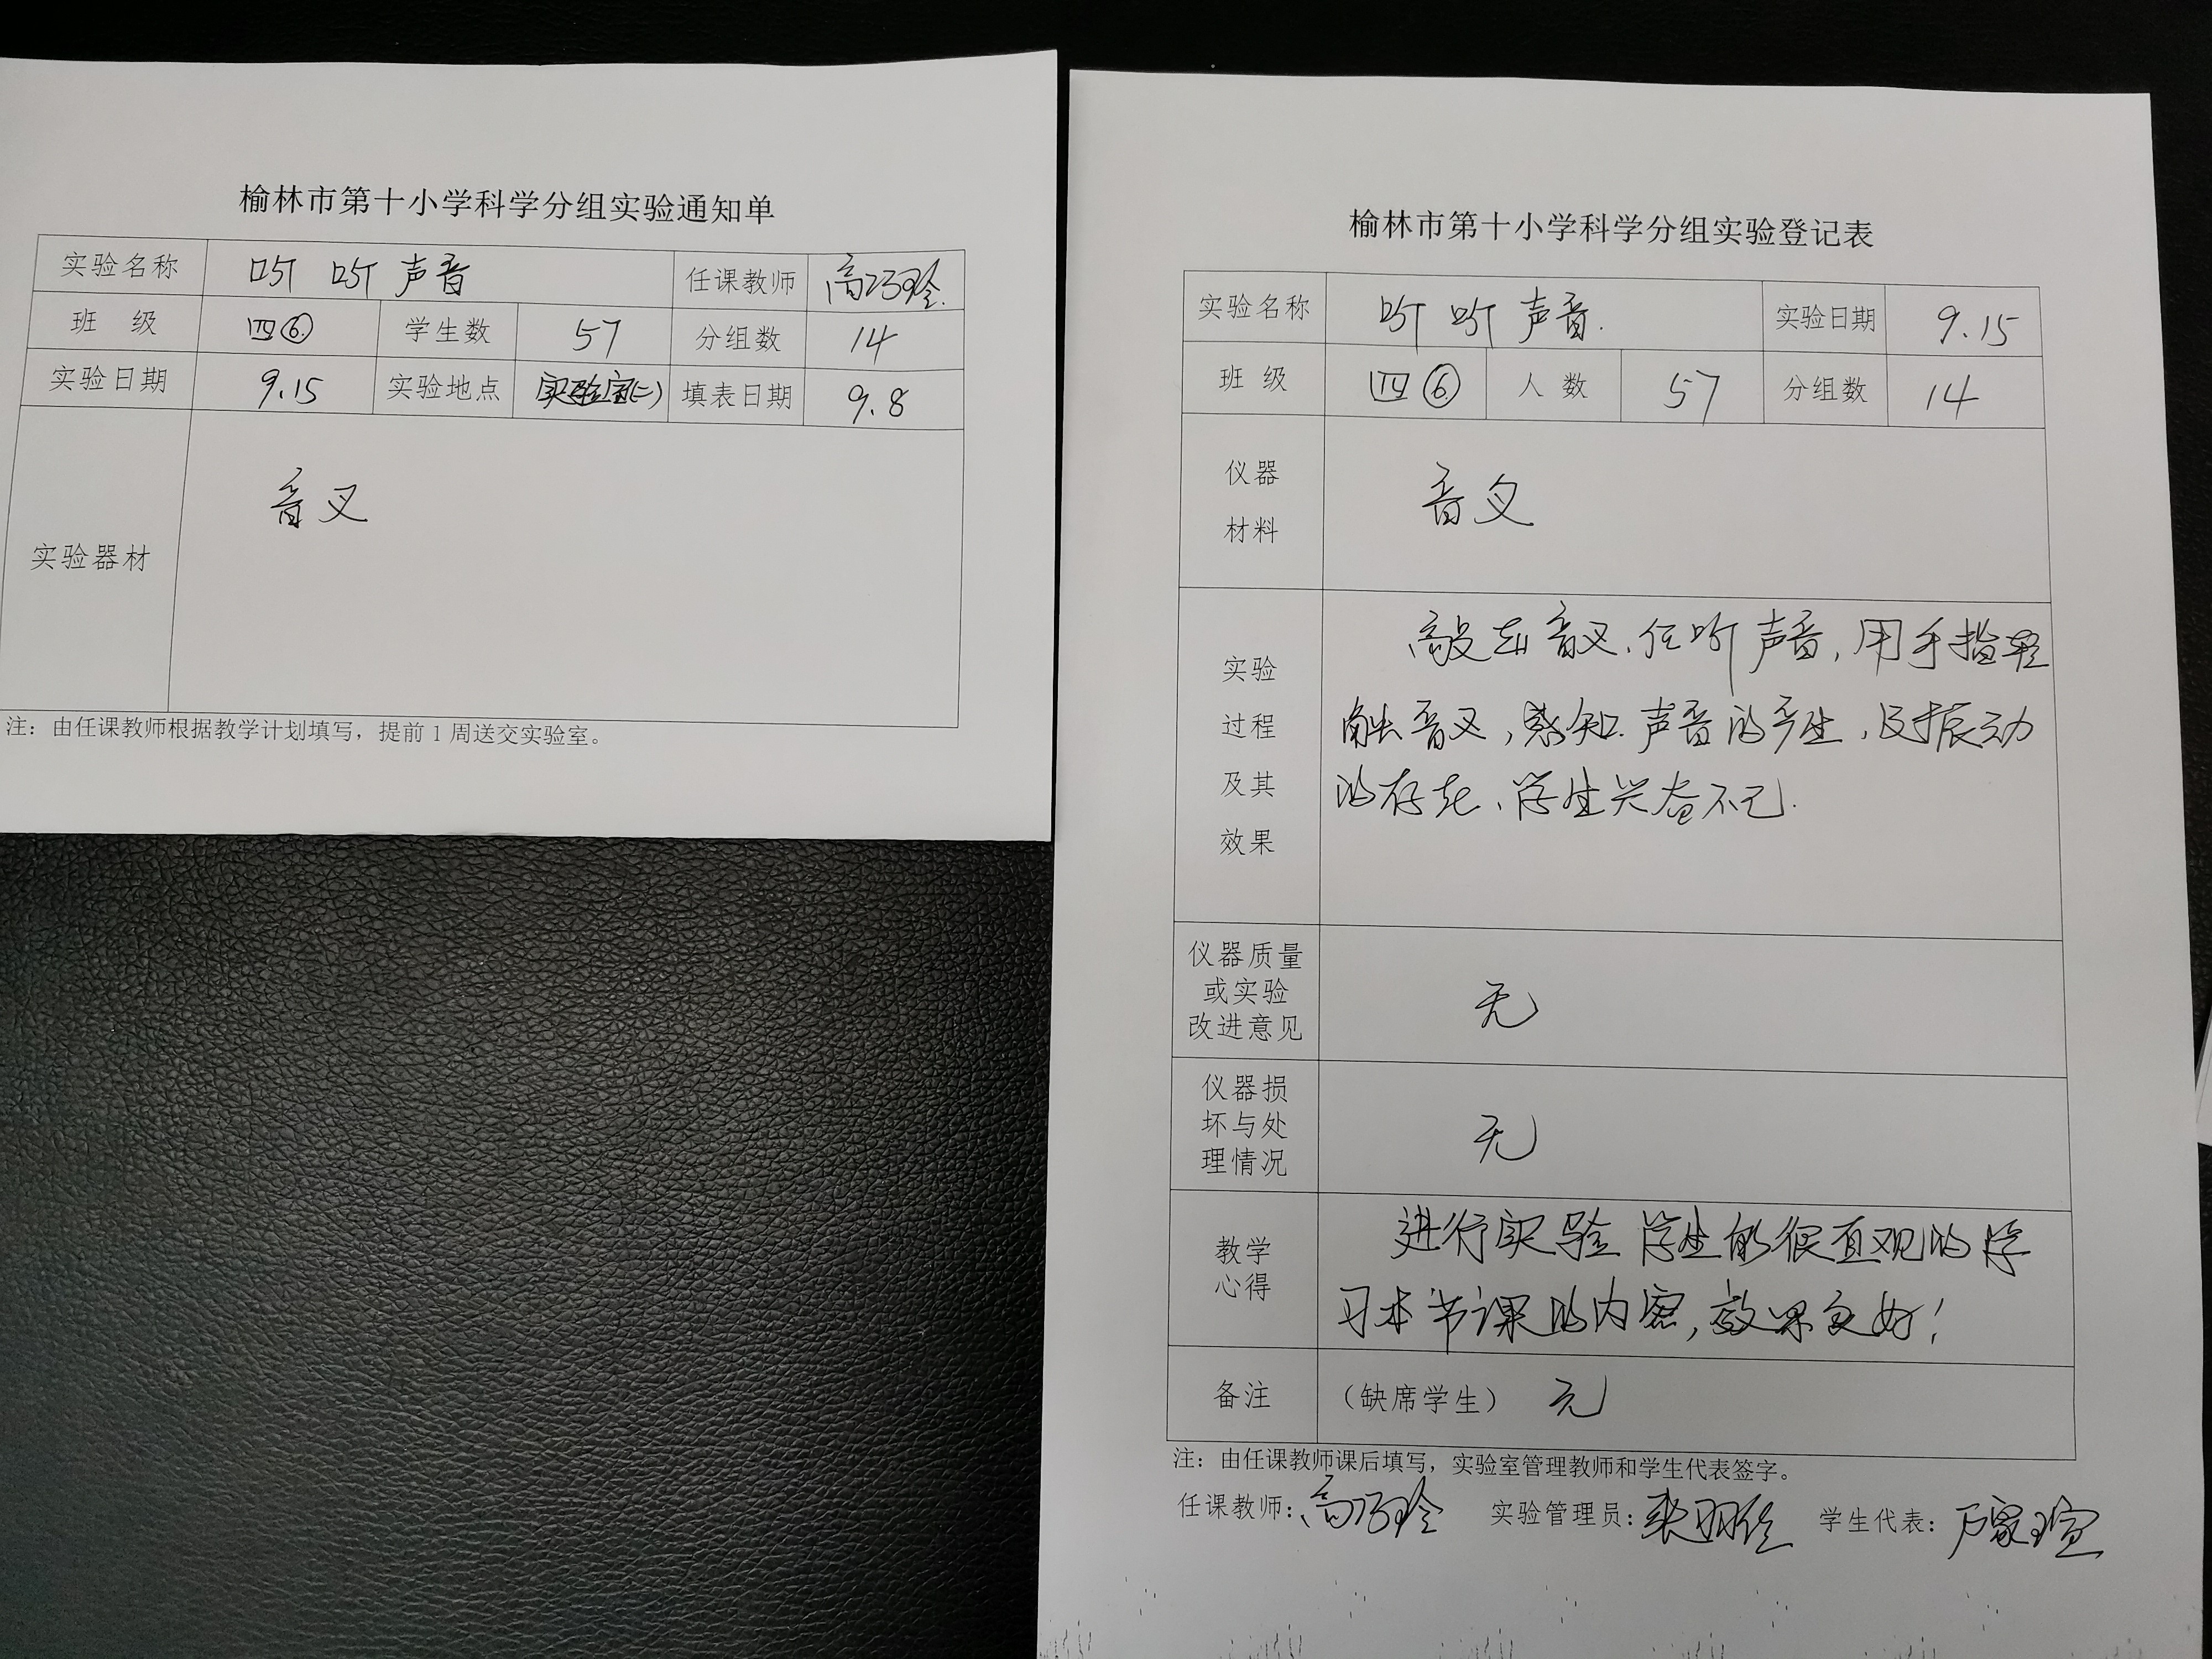 榆林市第十小学科学分组实验通知单
实验名称 听听声音 任课教师 高巧玲
班 级 四⑥ 学生数 57 分组数 14
实验日期 9.15 实验地点 实验室(二) 填表日期 9.8
实验器材 音叉
注：由任课教师根据教学计划填写，提前1周送交实验室。
榆林市第十小学科学分组实验登记表
实验名称 听听声音. 实验日期 9.15
班 级 四⑥ 人 数 57 分组数 14
仪器
材料
音叉
实验
过程
及其
效果
敲击音叉，位听声音，用手指轻
触音叉，感知声音的产生，及振动
的存在、学生兴奋不已.
仪器质量
或实验
改进意见
无
仪器损
坏与处
理情况
无
教学
心得
进行实验 学生能很直观的学
习本节课的内容，效果良好！
备注 （缺席学生） 无
注：由任课教师课后填写，实验室管理教师和学生代表签字。
任课教师：高巧玲 实验管理员： 学生代表：万家瑄